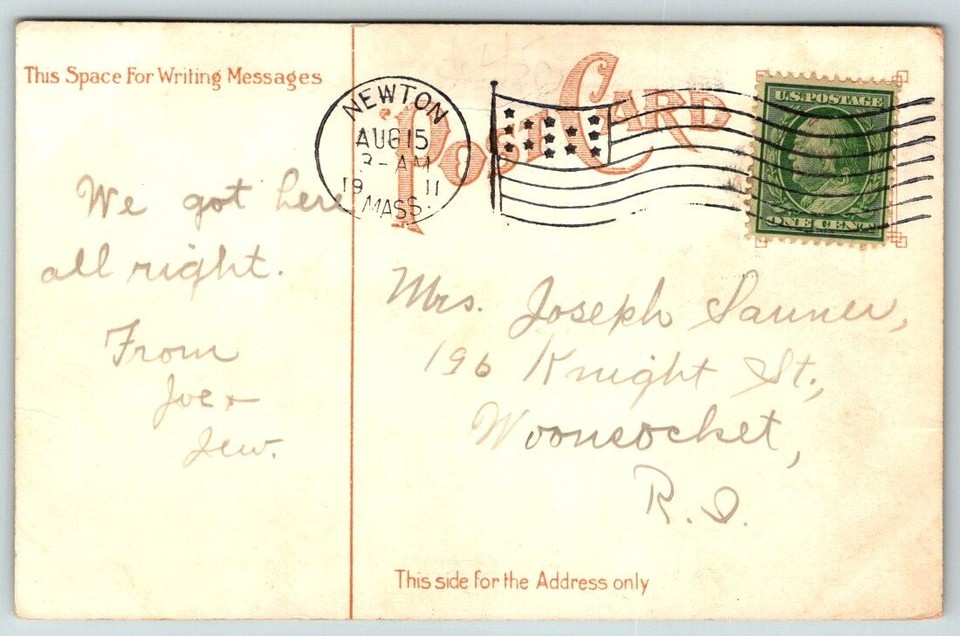 This Space For Writing Messages
POST CARD
NEWTON
AUG 15
3 - AM
19 11
MASS.
U.S. POSTAGE
ONE CENT
We got here
all right.
From
Joe +
Jew.
Mrs. Joseph Sanner,
196 Knight St.,
Woonsocket,
R.I.
This side for the Address only